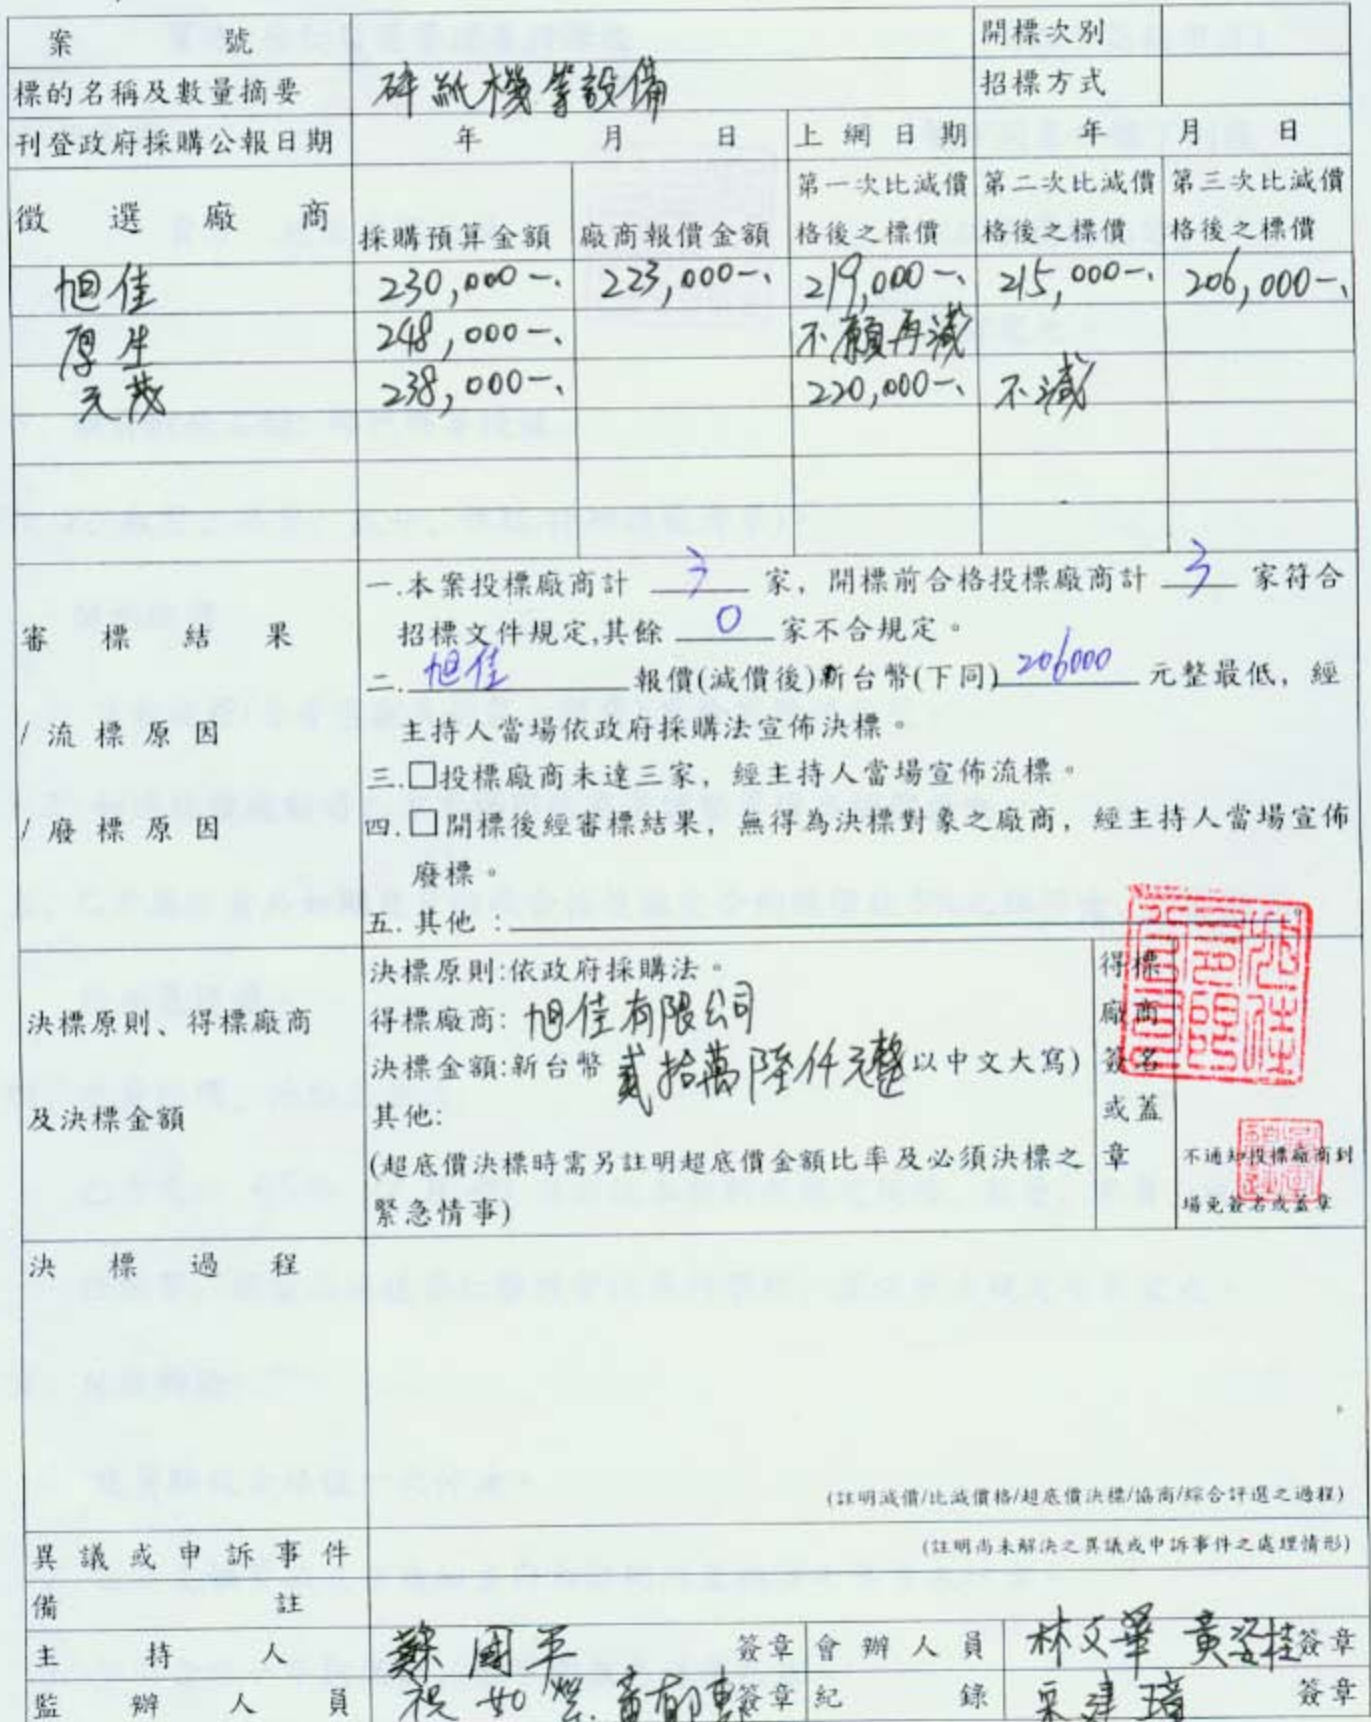 案 號 開標次別
標的名稱及數量摘要 碎紙機等設備 招標方式
刊登政府採購公報日期 年 月 日 上網日期 年 月 日
徵選廠商 採購預算金額 廠商報價金額 第一次比減價格後之標價 第二次比減價格後之標價 第三次比減價格後之標價
旭佳 230,000-、 223,000-、 219,000-、 215,000-、 206,000-、
厚生 248,000-、 不願再減
元茂 238,000-、 220,000-、 不減
審標結果
/流標原因
/廢標原因
一.本案投標廠商計 3 家，開標前合格投標廠商計 3 家符合
招標文件規定,其餘 0 家不合規定。
二. 旭佳 報價(減價後)新台幣(下同) 206000 元整最低，經
主持人當場依政府採購法宣佈決標。
三.□投標廠商未達三家，經主持人當場宣佈流標。
四.□開標後經審標結果，無得為決標對象之廠商，經主持人當場宣佈
廢標。
五.其他：
決標原則、得標廠商
及決標金額
決標原則:依政府採購法。
得標廠商: 旭佳有限公司
決標金額:新台幣 貳拾萬陸仟元整 以中文大寫)
其他:
(超底價決標時需另註明超底價金額比率及必須決標之
緊急情事)
得標
廠商
簽名
或蓋
章
不通知投標廠商到
場免簽名或蓋章
決標過程
(註明減價/比減價格/超底價決標/協商/綜合評選之過程)
異議或申訴事件 (註明尚未解決之異議或申訴事件之處理情形)
備註
主持人 蘇國平 簽章 會辦人員 林文華 黃 簽章
監辦人員 祝如 黃郁 簽章 紀錄 建 簽章